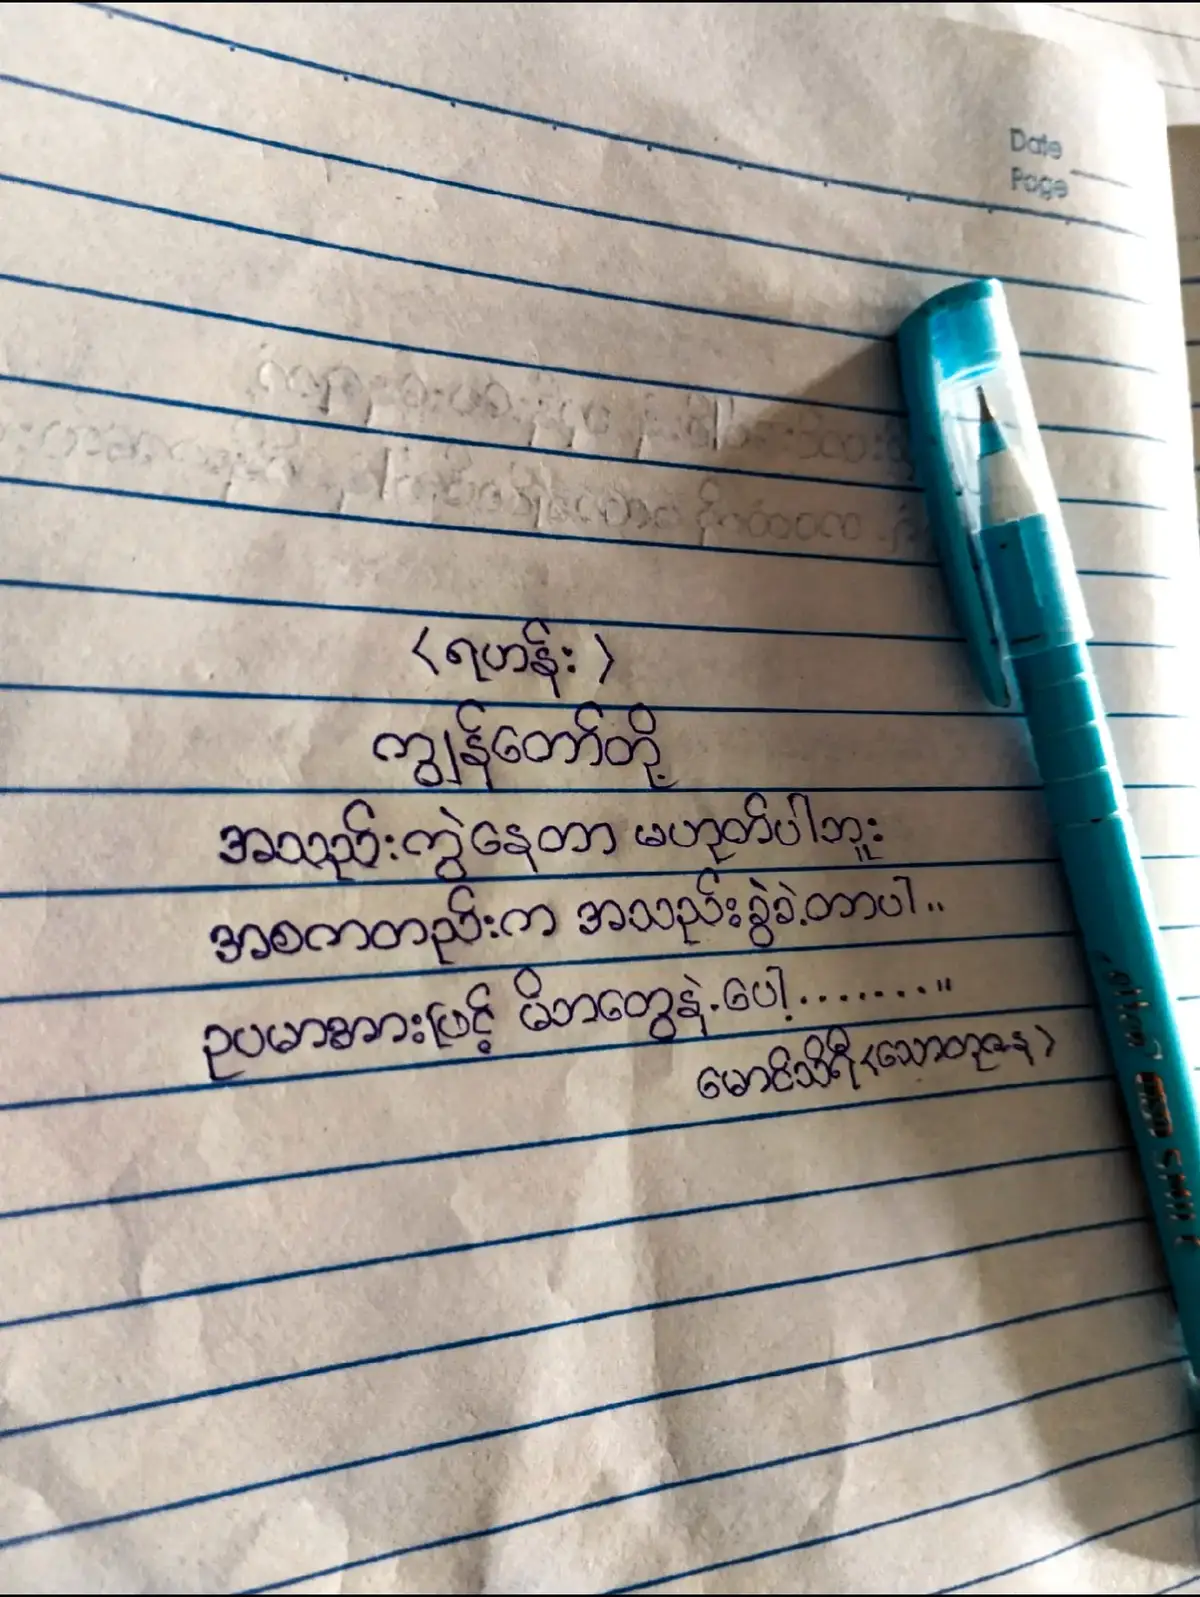 Date
Page
<ရဟန်း>
ကျွန်တော်တို့
အသည်းကွဲနေတာ မဟုတ်ပါဘူး
အစကတည်းက အသည်းခွဲခဲ့တာပါ..
ဥပမာအားဖြင့် မိဘတွေနဲ့ပေါ့........"
မောင်သိရီ<သောတုဇန>